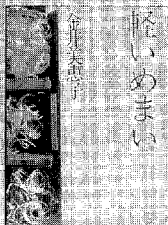 軽いめまい
金井美恵子